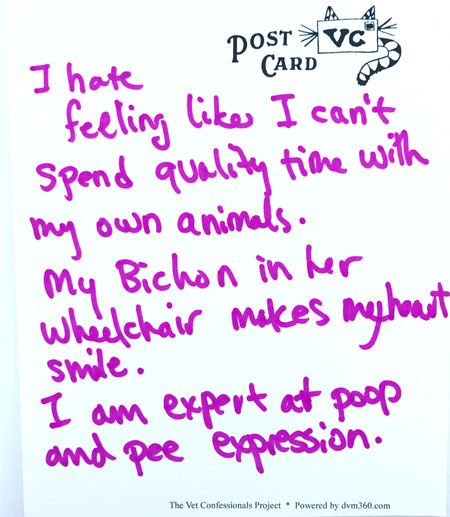 POST CARD VC
I hate
feeling like I can't
spend quality time with
my own animals.
My Bichon in her
wheelchair makes my heart
smile.
I am expert at poop
and pee expression.
The Vet Confessionals Project * Powered by dvm360.com